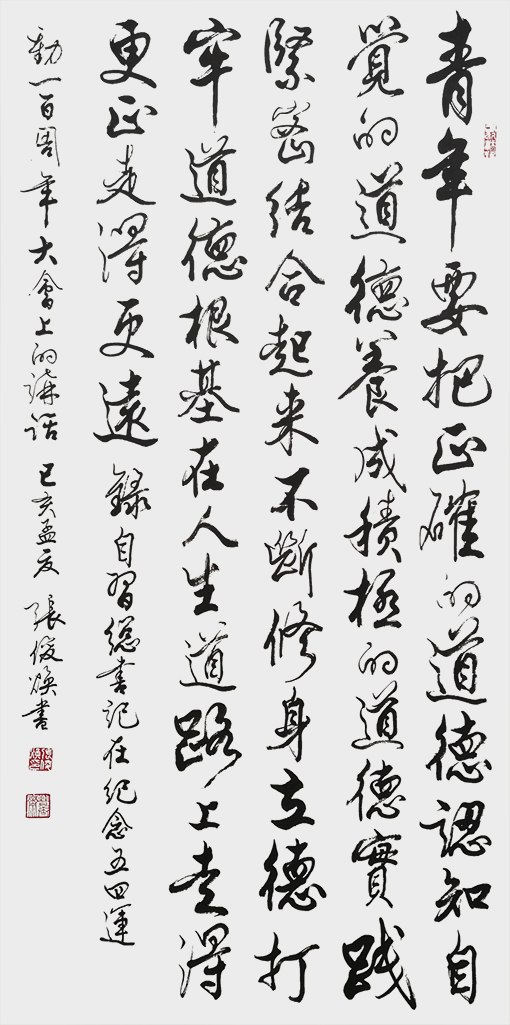 青年要把正確的道德認知自
覺的道德養成積極的道德實践
緊密結合起來不斷修身立德打
牢道德根基在人生道路上走得
更正走得更遠 錄自習總書記在紀念五四運
動一百周年大會上的講話 己亥孟夏 張俊煥書